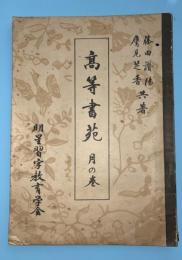 藤田澄陽
鷹見芝香 共著
高等書苑
月の巻
明星習字教育学会